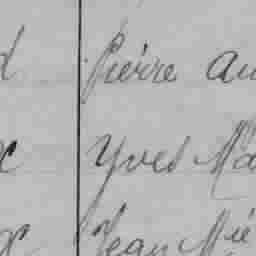 Pierre Au
Yves Ma
Jean Mie